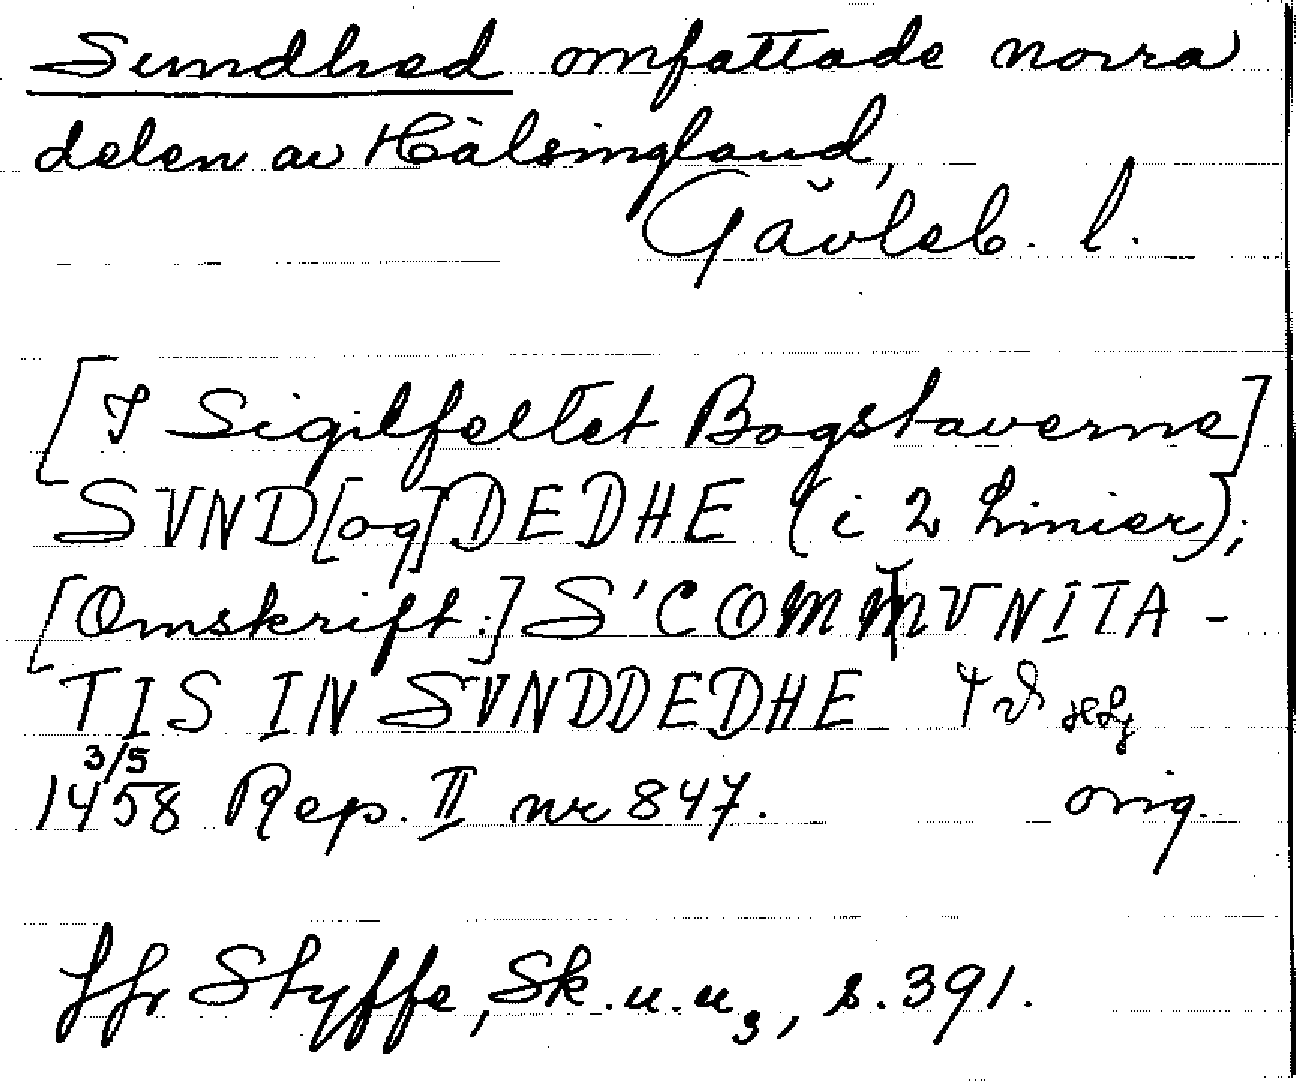 Sundhed omfattade norra
delen av Hälsingland,
Gävleb. l.
[I Sigilfeltet Bogstaverne]
SVND[og]DEDHE (i 2 Linier);
[Omskrift:] S'COMMVNITA-
TIS IN SVNDDEDHE
3/5
1458 Rep. II nr 847. orig.
Jfr Styffe, Sk.u.u3, s.391.